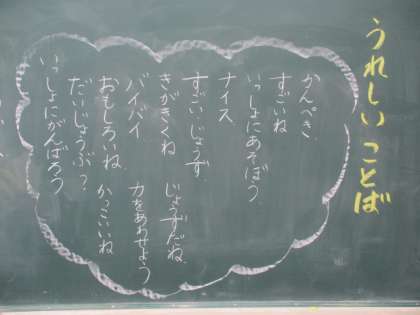 うれしい ことば
かんぺき
すごいね
いっしょにあそぼう
ナイス
すごい じょうず
きがきくね じょうずだね
バイバイ 力をあわせよう
おもしろいね かっこいいね
だいじょうぶ？
いっしょにがんばろう